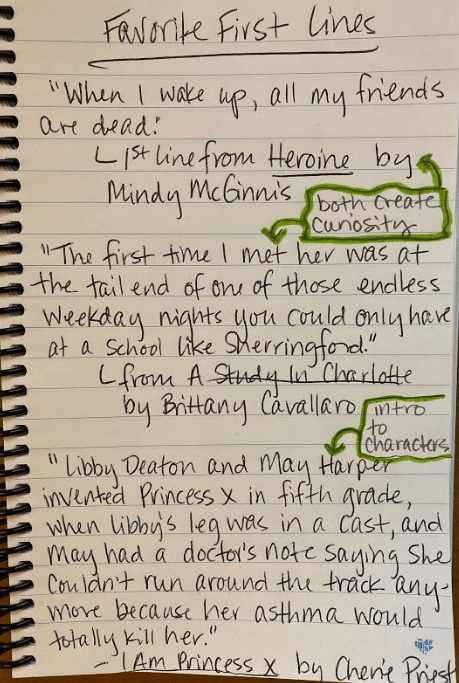 Favorite First Lines
"When I wake up, all my friends
are dead."
L 1st line from Heroine by
Mindy McGinnis
both create
curiosity
"The first time I met her was at
the tail end of one of those endless
weekday nights you could only have
at a school like Sherringford."
L from A Study In Charlotte
by Brittany Cavallaro
intro
to
characters
"Libby Deaton and May Harper
invented Princess X in fifth grade,
when Libby's leg was in a cast, and
May had a doctor's note saying she
couldn't run around the track any-
more because her asthma would
totally kill her."
- I Am Princess X by Cherie Priest